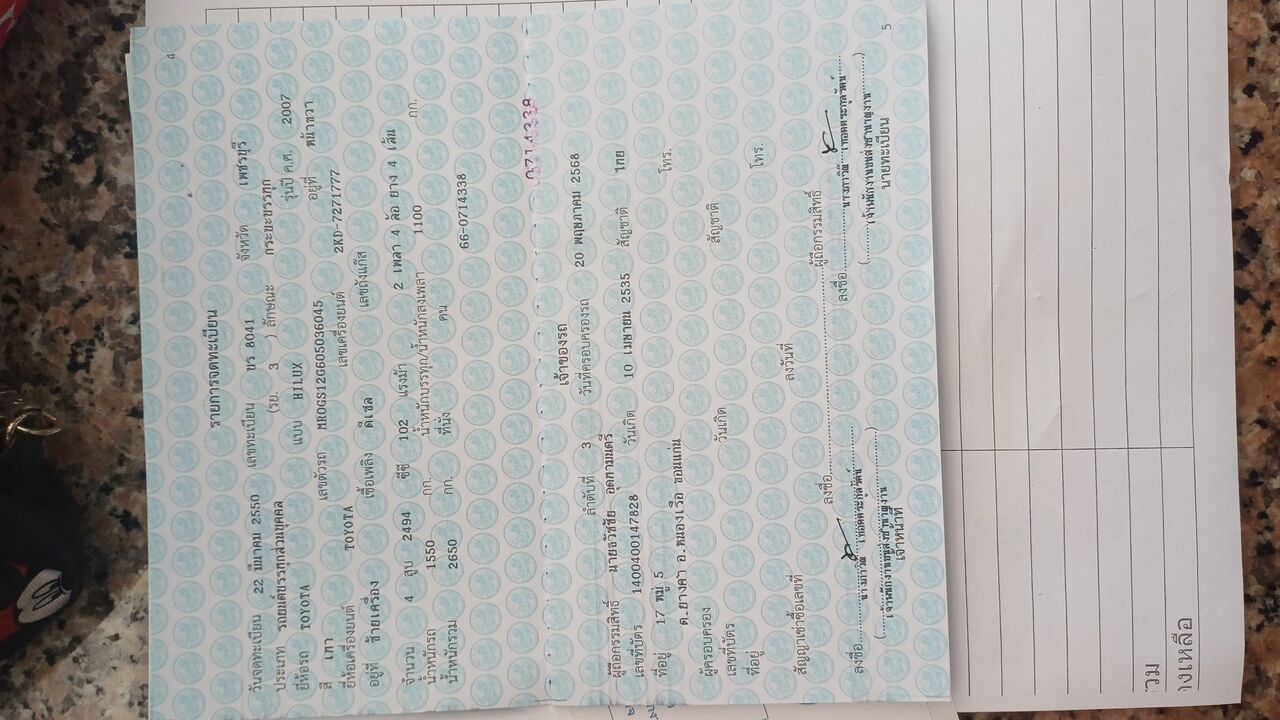 4
รายการจดทะเบียน
วันจดทะเบียน 22 มีนาคม 2550 เลขทะเบียน ขร 8041 จังหวัด เพชรบุรี
ประเภท รถยนต์บรรทุกส่วนบุคคล (รย. 3 ) ลักษณะ กระบะบรรทุก
ยี่ห้อรถ TOYOTA แบบ HILUX รุ่นปี ค.ศ. 2007
สี เทา เลขตัวรถ MROGS12G605036045 อยู่ที่ หน้าขวา
ยี่ห้อเครื่องยนต์ TOYOTA เลขเครื่องยนต์ 2KD-7271777
อยู่ที่ ซ้ายเครื่อง เชื้อเพลิง ดีเซล เลขถังแก๊ส
จำนวน 4 สูบ 2494 ซีซี 102 แรงม้า 2 เพลา 4 ล้อ ยาง 4 เส้น
น้ำหนักรถ 1550 กก. น้ำหนักบรรทุก/น้ำหนักลงเพลา 1100 กก.
น้ำหนักรวม 2650 กก. ที่นั่ง คน
66-0714338
0714338
เจ้าของรถ
ลำดับที่ 3 วันที่ครอบครองรถ 20 พฤษภาคม 2568
ผู้ถือกรรมสิทธิ์ นายธวัชชัย อุดทามนตรี
เลขที่บัตร 1400400147828 วันเกิด 10 เมษายน 2535 สัญชาติ ไทย
ที่อยู่ 17 หมู่ 5 โทร.
ต.ยางคำ อ.หนองเรือ ขอนแก่น
ผู้ครอบครอง
เลขที่บัตร วันเกิด สัญชาติ
ที่อยู่ โทร.
สัญญาเช่าซื้อเลขที่ ลงวันที่
ลงชื่อ ผู้ถือกรรมสิทธิ์
ลงชื่อ ลงชื่อ
(เจ้าพนักงานขนส่งชำนาญงาน) (เจ้าพนักงานขนส่งชำนาญงาน)
เจ้าหน้าที่ นายทะเบียน
5
วม
างเหลือ